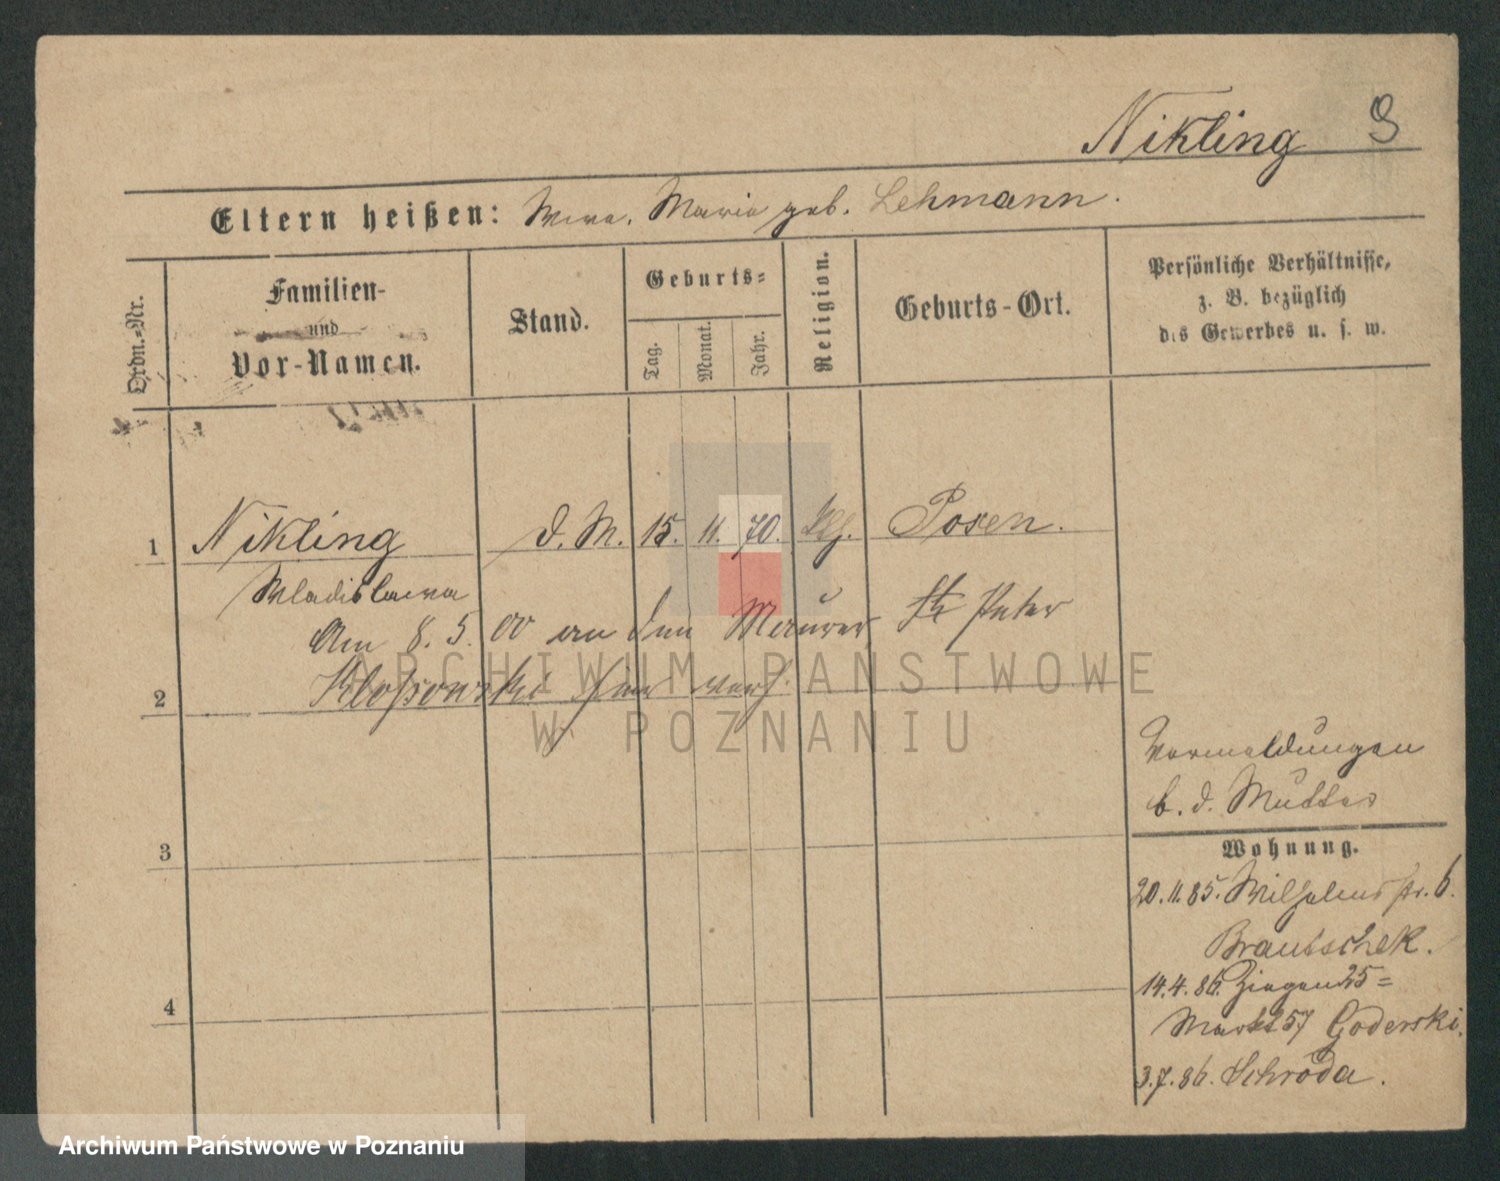 Nikling 9
Eltern heißen: Wwe. Maria geb. Lehmann.
Ordn.-Nr.
Familien-
und
Vor-Namen.
Stand.
Geburts-
Tag.
Monat.
Jahr.
Religion.
Geburts-Ort.
Persönliche Verhältnisse,
z. B. bezüglich
des Gewerbes u. s. w.
1 Nikling d. M. 15. 11. 70. Posen.
Wladislawa
Am 8. 5. 00 an den Maurer Peter
2 Kloßowski hier verh.
3
4
Vermeldungen
b. d. Mutter
Wohnung.
20.11.85. Wilhelmspl. 6.
Brautschek.
14.4.86. 25=
Markt 57 Goderski.
3.7.86. Schroda.
ARCHIWUM PAŃSTWOWE
W POZNANIU
Archiwum Państwowe w Poznaniu